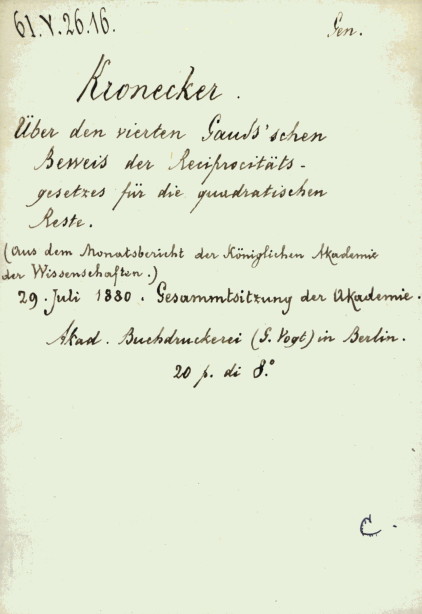 61.V.26.16.
Gen.
Kronecker.
Über den vierten Gauß'schen
Beweis der Reciprocitäts-
gesetzes für die quadratischen
Reste.
(Aus dem Monatsbericht der Königlichen Akademie
der Wissenschaften.)
29. Juli 1880. Gesammtsitzung der Akademie.
Akad. Buchdruckerei (G. Vogt) in Berlin.
20 p. di 8.°
C.